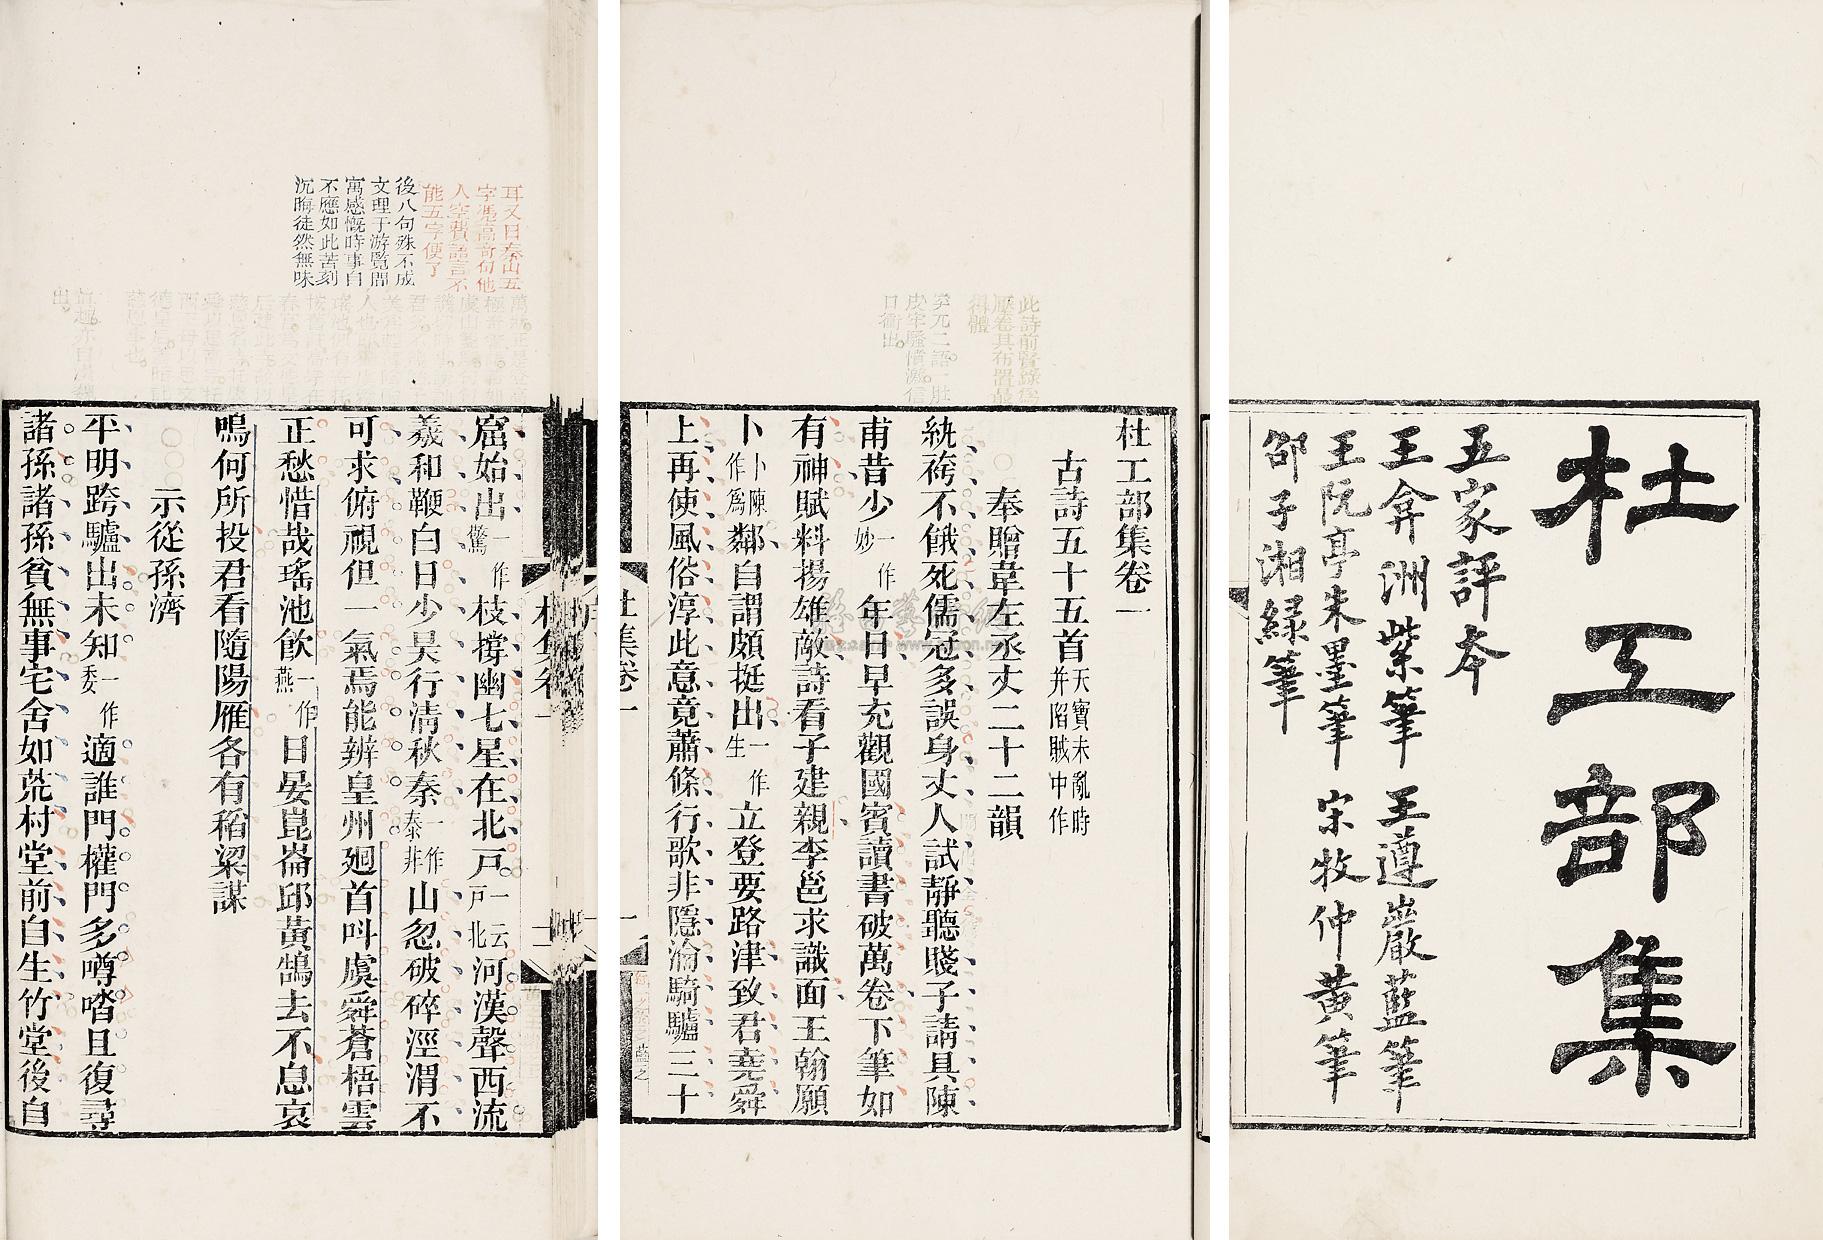 杜工部集
五家評本
王弇洲紫筆　王遵巖藍筆
王阮亭朱墨筆　宋牧仲黃筆
邵子湘綠筆
此詩前賢錄爲
壓卷其布置最
得體
日衝出
杜工部集卷一
古詩五十五首天寶未亂時并陷賊中作
奉贈韋左丞丈二十二韻
紈袴不餓死儒冠多誤身丈人試靜聽賤子請具陳
甫昔少一作妙年日早充觀國賓讀書破萬卷下筆如
有神賦料揚雄敵詩看子建親李邕求識面王翰願
卜卜陳作爲鄰自謂頗挺出一作生立登要路津致君堯舜
上再使風俗淳此意竟蕭條行歌非隱淪騎驢三十
杜集卷一
一
耳又曰秦山五
字憑高奇句他
人空費語言不
能五字便了
後八句殊不成
文理于游覽間
寓感慨時事自
不應如此苦刻
沉晦徒然無味
窟始出一作驚枝撐幽七星在北戶一云戶北河漢聲西流
羲和鞭白日少昊行清秋秦一作泰非山忽破碎涇渭不
可求俯視但一氣焉能辨皇州廻首叫虞舜蒼梧雲
正愁惜哉瑤池飲一作燕日晏崑崙邱黃鵠去不息哀
鳴何所投君看隨陽雁各有稻粱謀
示從孫濟
平明跨驢出未知一作委適誰門權門多噂㳫且復尋
諸孫諸孫貧無事宅舍如荒村堂前自生竹堂後自